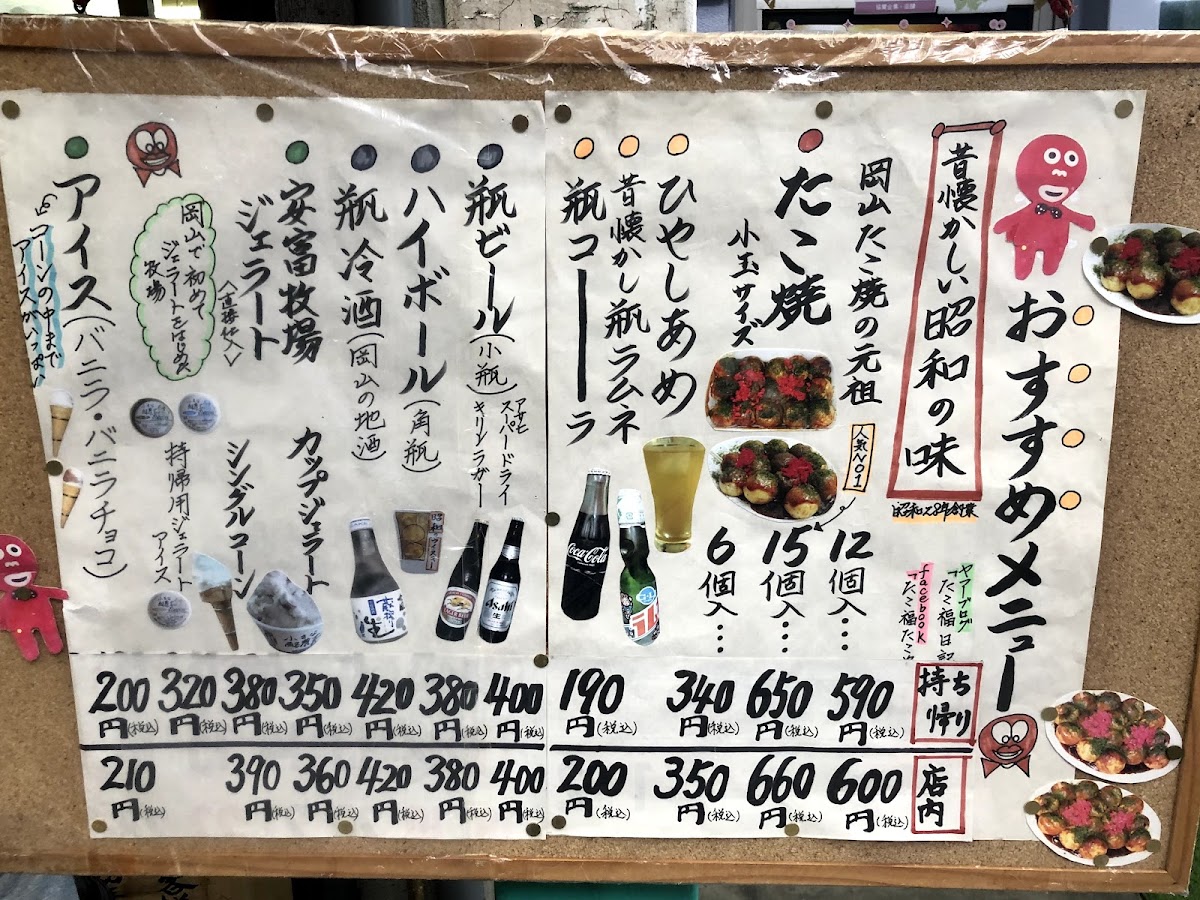 おすすめメニュー
昔懐かしい昭和の味
昭和28年創業
ヤフーブログ
『たこ福日記
facebook
『たこ福たこ
岡山たこ焼の元祖
人気NO1
たこ焼
小玉サイズ
12個入…
15個入…
6個入…
ひやしあめ
昔懐かし瓶ラムネ
瓶コーラ
Coca-Cola
瓶ビール(小瓶)
アサヒ
スーパードライ
キリンラガー
Asahi
生
ハイボール(角瓶)
瓶冷酒(岡山の地酒)
安富牧場
ジェラート
〈直接仕入〉
カップジェラート
シングルコーン
岡山で初めて
ジェラートをはじめた
牧場
持帰用ジェラート
アイス
アイス(バニラ・バニラチョコ)
コーンの中まで
アイスがいっぱい
持ち帰り
590円(税込)
650円(税込)
340円(税込)
190円(税込)
400円(税込)
380円(税込)
420円(税込)
350円(税込)
380円(税込)
320円(税込)
200円(税込)
店内
600円(税込)
660円(税込)
350円(税込)
200円(税込)
400円(税込)
380円(税込)
420円(税込)
360円(税込)
390円(税込)
210円(税込)